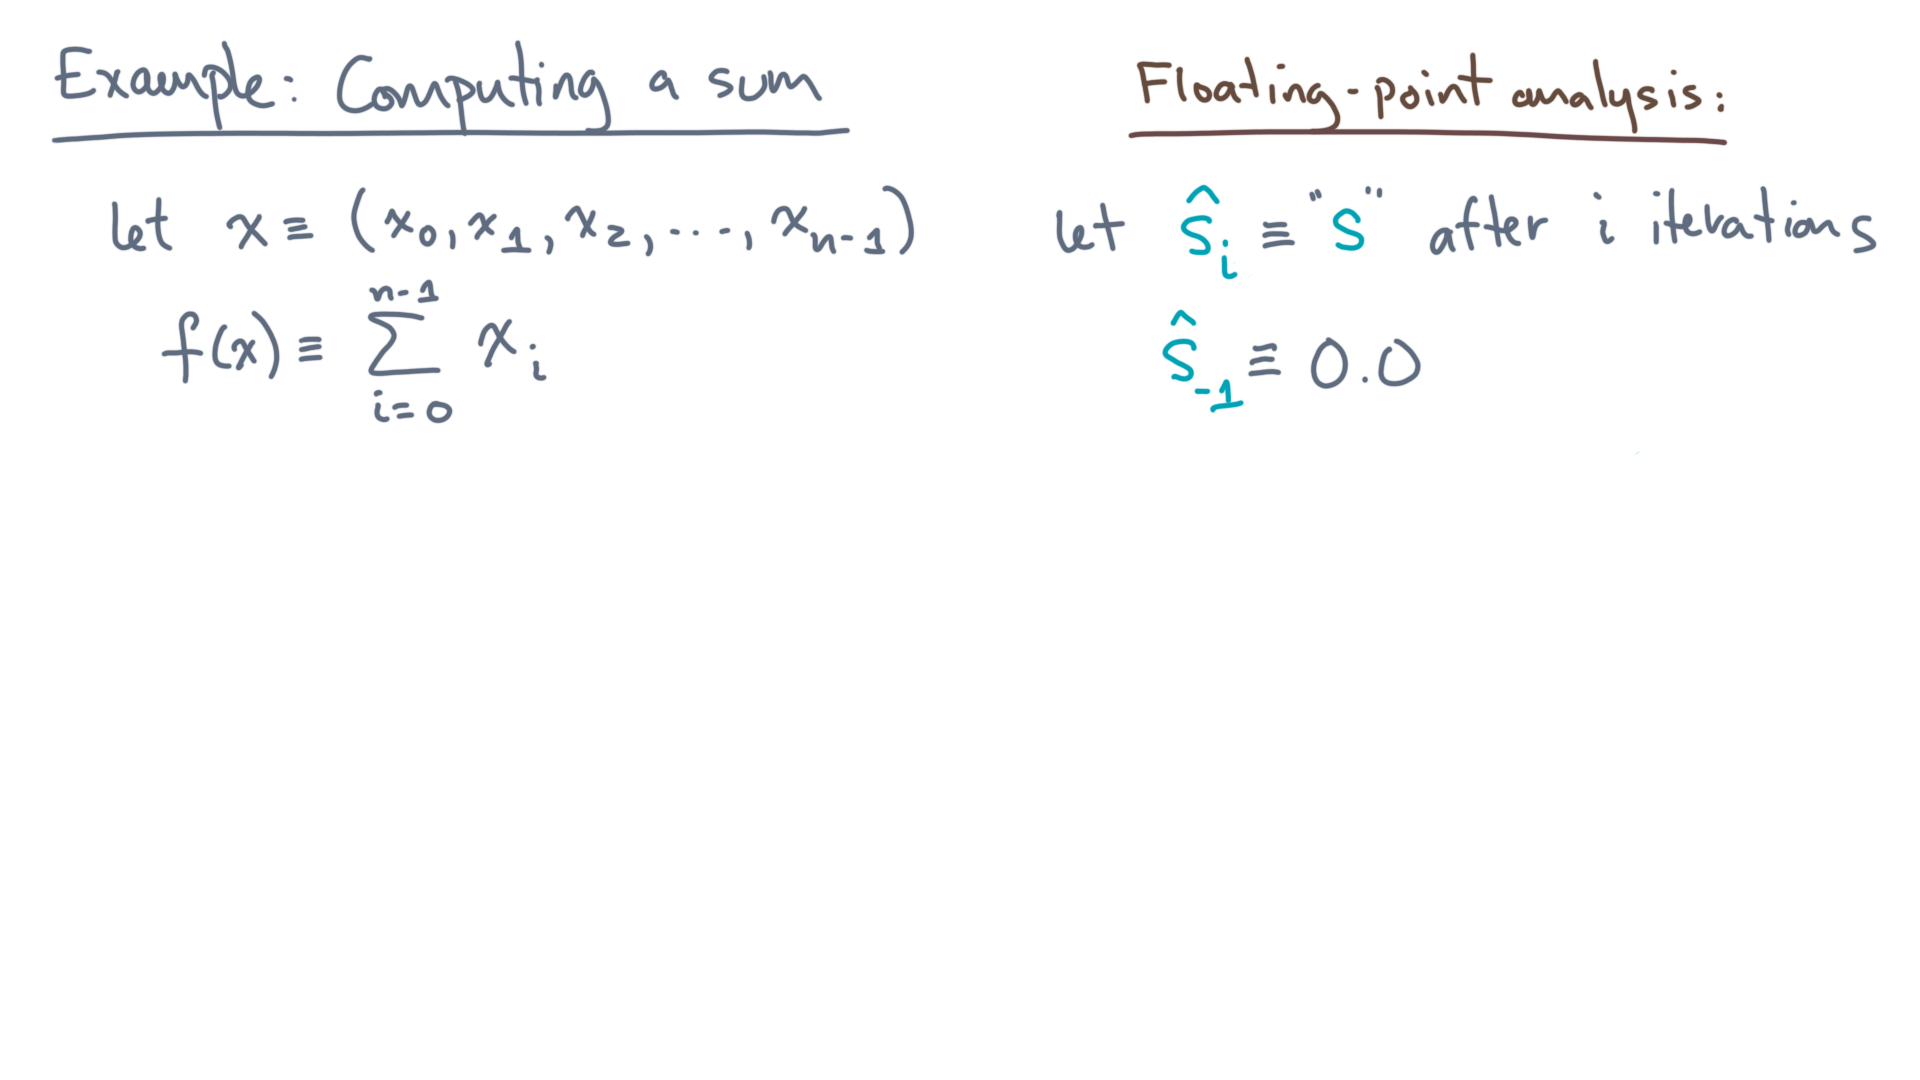 Example: Computing a sum
let x ≡ (x₀, x₁, x₂, ..., xₙ₋₁)
f(x) ≡ ∑_{i=0}^{n-1} xᵢ
Floating-point analysis:
let ŝᵢ ≡ "s" after i iterations
ŝ₋₁ ≡ 0.0